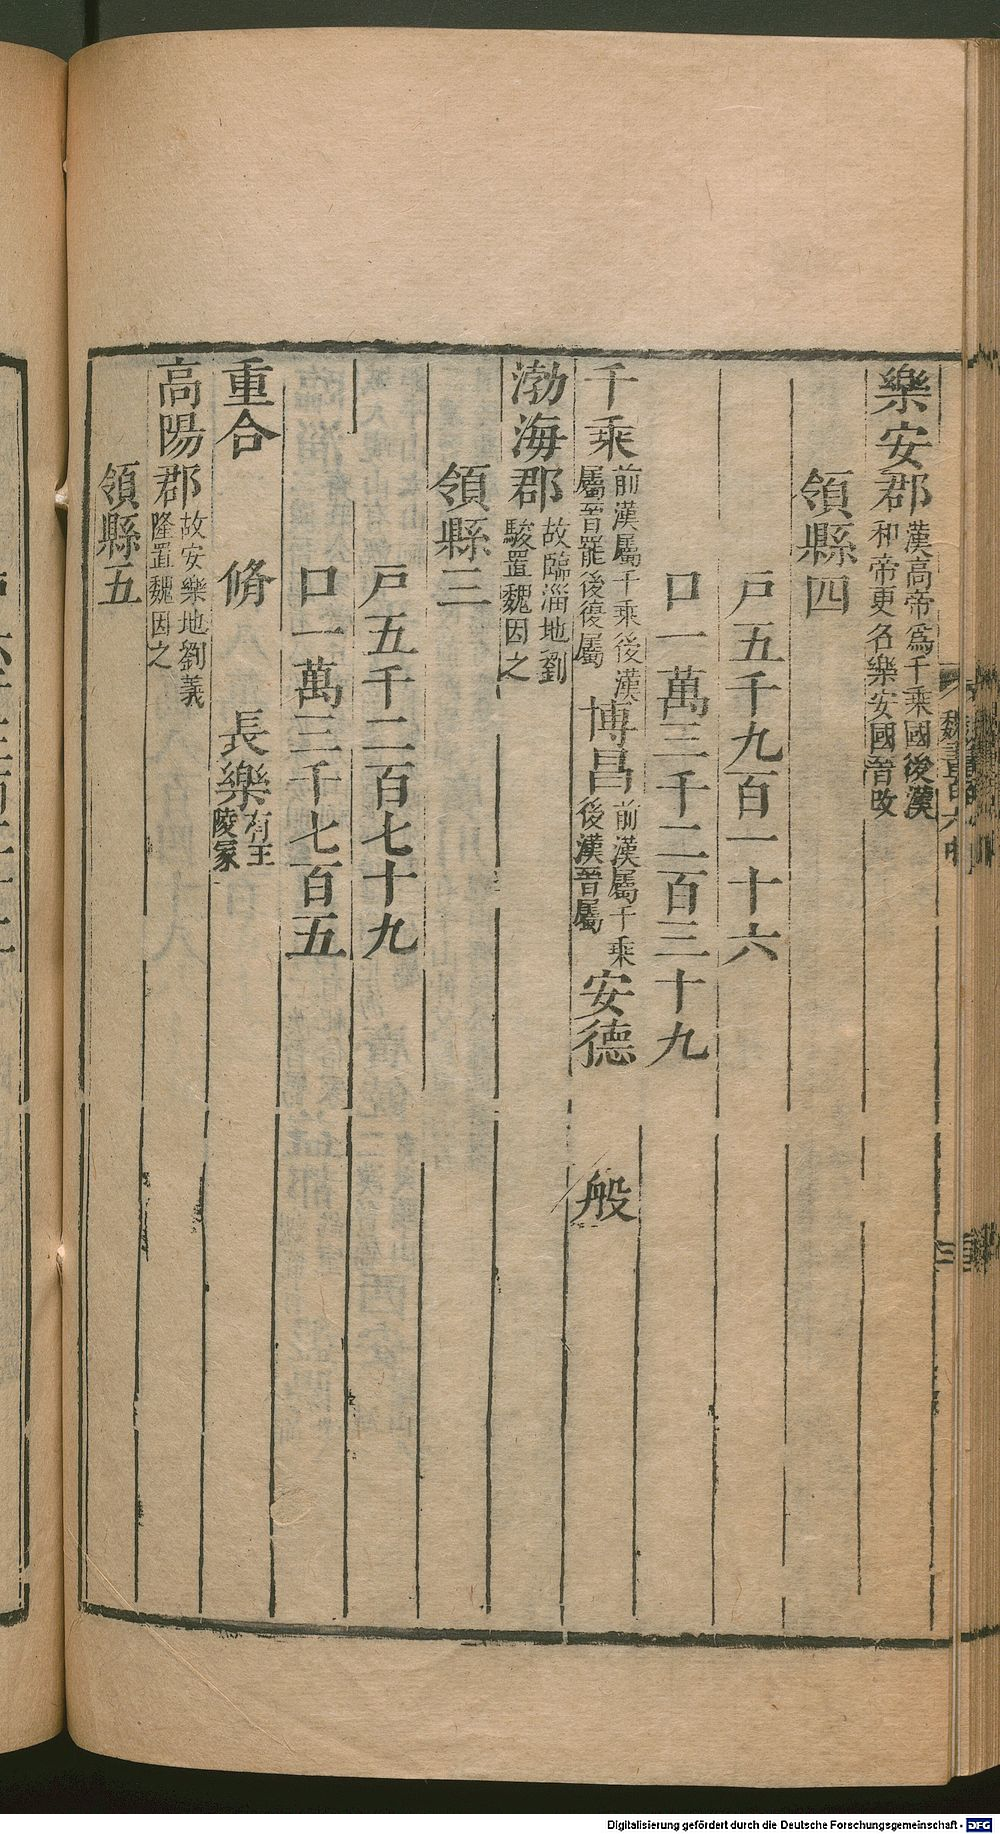 樂安郡漢高帝爲千乘國後漢和帝更名樂安國晉改
領縣四
戸五千九百一十六
口一萬三千二百三十九
千乘前漢屬千乘後漢屬晉罷後復屬 博昌前漢屬千乘後漢晉屬 安德 般
渤海郡故臨淄地劉駿置魏因之
領縣三
戸五千二百七十九
口一萬三千七百五
重合 脩 長樂有王陵冢
高陽郡故安樂地劉義隆置魏因之
領縣五
Digitalisierung gefördert durch die Deutsche Forschungsgemeinschaft - DFG